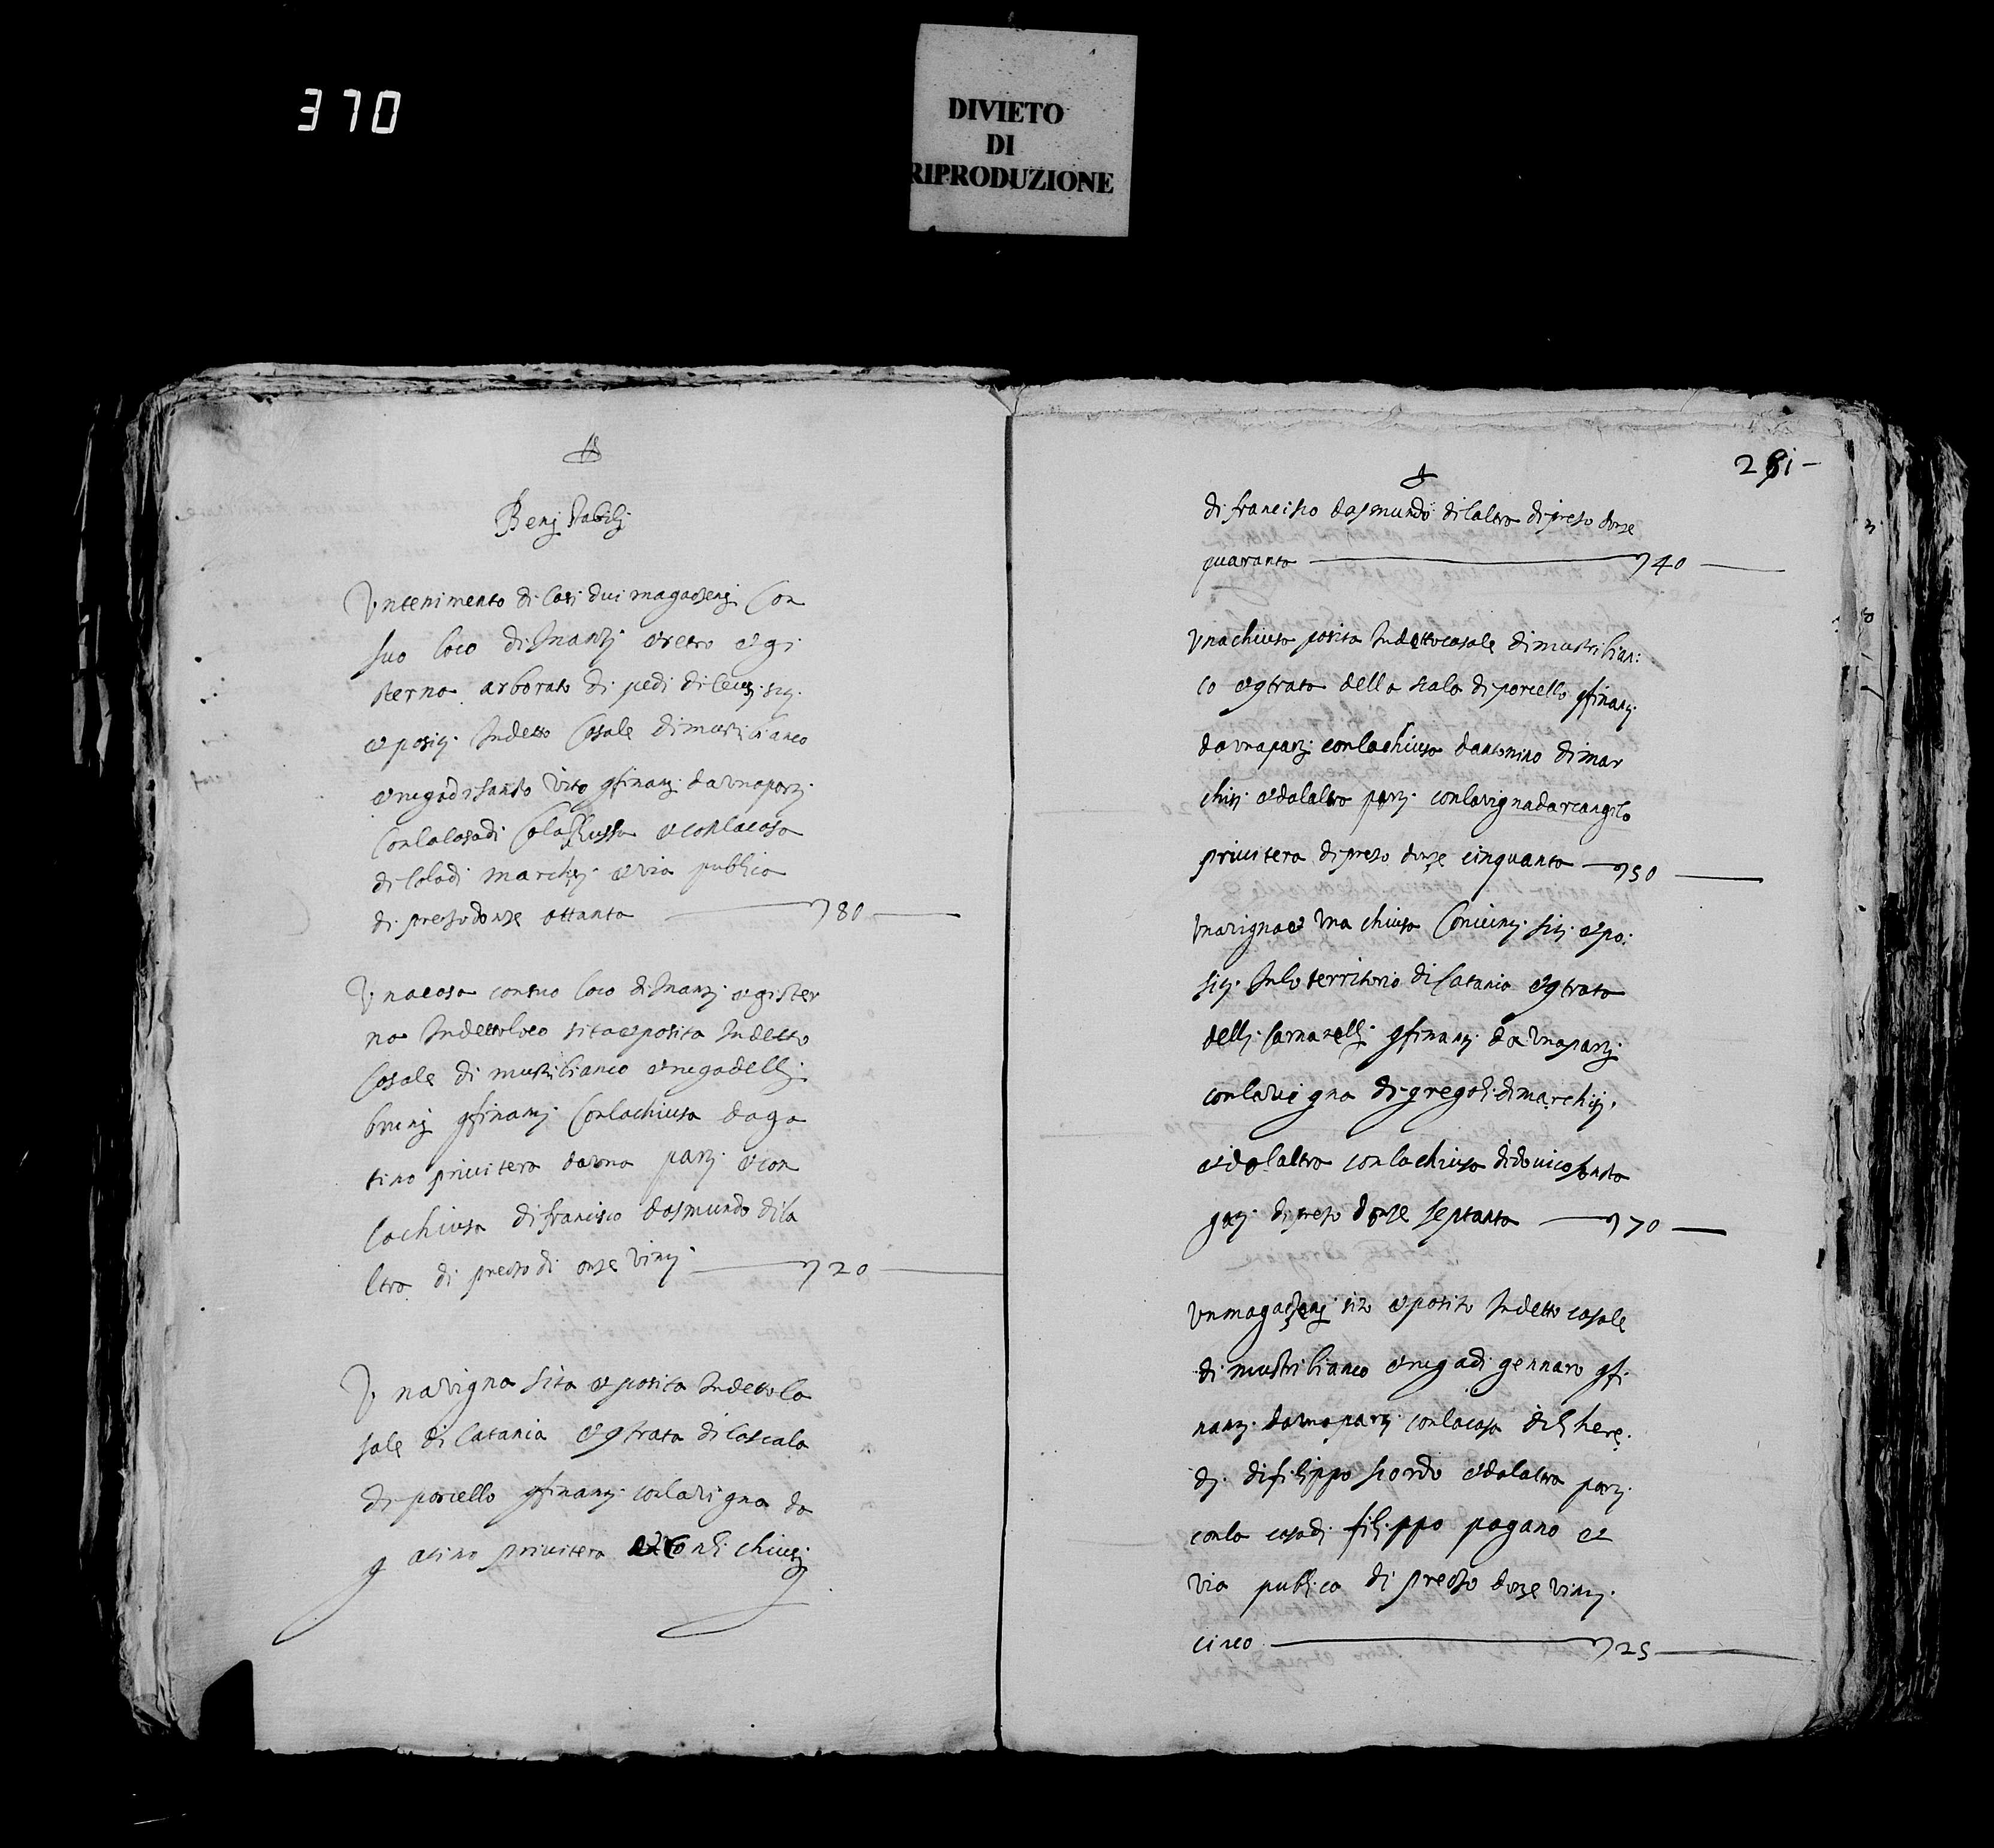 370
DIVIETO
DI
RIPRODUZIONE
Benj stabilj
Vntenimento di Casi dui magaszenj Con
suo loco di Jnantj et retro et gi
sterna arborato di pedi di siti
et positj Jndetto Casale di mustribianco
et ruga di santo Vito gfinantj da vna partj
Con la Casa di Cola Russo et con la casa
di Cola di marchisj et via publica
di prezzo donze ottanta 80
Vna casa con suo loco di Jnantj et gister
na Jndetto loco sita et posita Jndetto
Casale di mustribianco et ruga dellj
brunj gfinantj Con la chiusa daga
tino priuitera da vna partj et con
la chiusa di francisco dasmundo di la
ltra di prezzo di onze vintj 20
Vna vigna sita et posita Jndetto Ca
sale di Catania et gtrata di la scala
di porcello gfinantj con la vigna da
gatino priuitera et con li chiusj
291
di francisco dasmundo di laltra di prezo donze
quaranta 40
Vna chiusa posita Jndetto casale di mustribian:
co et gtrata della scala di porcello gfinantj
da vna partj con la chiusa dantonino di mar
chisj et dalaltra partj con la vigna darcangilo
priuitera di prezo donze cinquanta 50
Vna vigna et vna chiusa Conicinti siti et po:
siti Julo territorio di Catania et gtrata
dellj gfinantj da vna partj
con la vigna di gregoli di marchisj
et dalaltra con la chiusa di
di prezo donze septanta 70
Vn magaszenj sito et posito Jndetto casale
di mustribianco et ruga di gennaro gfi
nantj da vna partj con la casa dili here
di di filippo scordo et dalaltra partj
con la casa di filippo pagano et
via publica di prezzo donze vintj
cinco 25